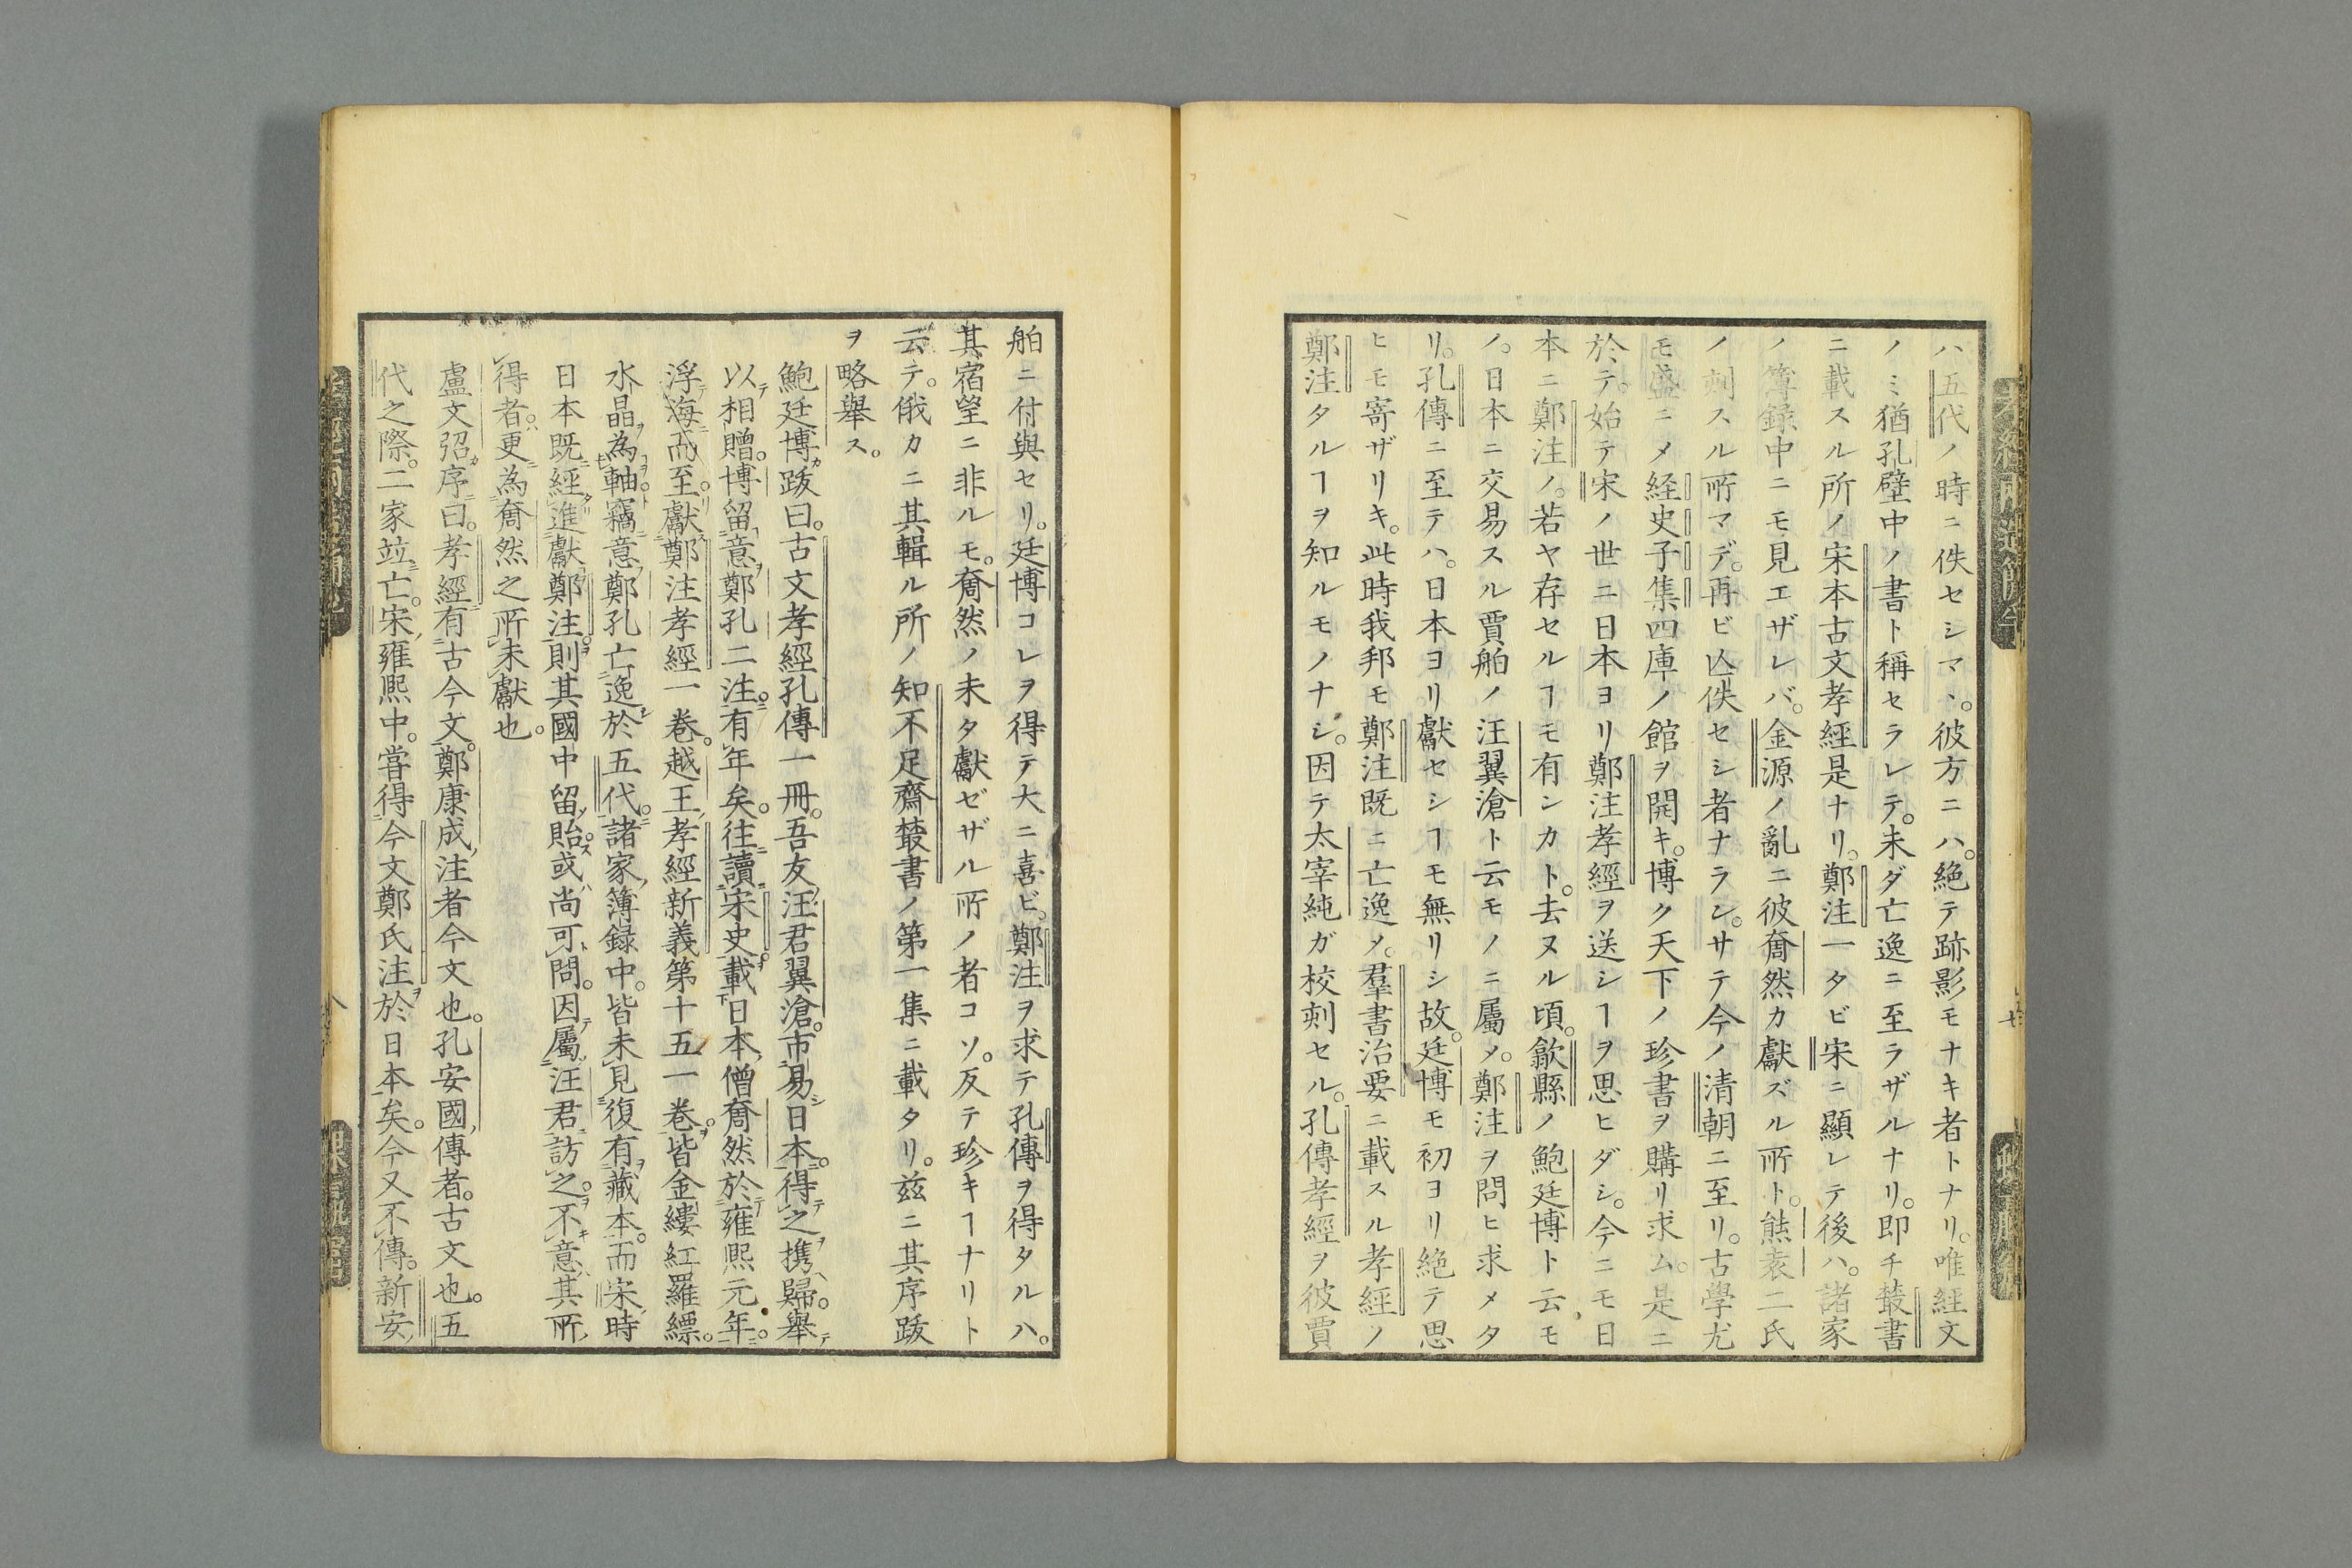 ハ五代ノ時ニ佚セシマヽ。彼方ニハ。絶テ跡影モナキ者トナリ。唯経文
ノミ猶孔壁中ノ書ト稱セラレテ。未ダ亡逸ニ至ラザルナリ。即チ叢書
ニ載スル所ノ宋本古文孝經是ナリ。鄭注一タビ宋ニ顯レテ後ハ。諸家
ノ簿録中ニモ見エザレバ。金源ノ亂ニ彼奝然カ獻ズル所ト。熊袁二氏
ノ刻スル所マデ。再ビ亾佚セシ者ナラン。サテ今ノ清朝ニ至リ。古學尤
モ盛ニメ経史子集四庫ノ館ヲ開キ。博ク天下ノ珍書ヲ購リ求ム。是ニ
於テ。始テ宋ノ世ニ日本ヨリ鄭注孝經ヲ送シヿヲ思ヒダシ。今ニモ日
本ニ鄭注ノ。若ヤ存セルヿモ有ンカト。去ヌル頃。歙縣ノ鮑廷博ト云モ
ノ。日本ニ交易スル賈舶ノ汪翼滄ト云モノニ屬メ。鄭注ヲ問ヒ求メタ
リ。孔傳ニ至テハ。日本ヨリ獻セシヿモ無リシ故。廷博モ初ヨリ絶テ思
ヒモ寄ザリキ。此時我邦モ鄭注既ニ亡逸メ。羣書治要ニ載スル孝經ノ
鄭注タルヿヲ知ルモノナシ。因テ太宰純ガ校刻セル。孔傳孝經ヲ彼賈
舶ニ付與セリ。廷博コレヲ得テ大ニ喜ビ。鄭注ヲ求テ孔傳ヲ得タルハ。
其宿望ニ非ルモ。奝然ノ未タ獻ゼザル所ノ者コソ。反テ珍キヿナリト
云テ。俄カニ其輯ル所ノ知不足齋叢書ノ第一集ニ載タリ。茲ニ其序跋
ヲ略舉ス。
鮑廷博カ跋曰。古文孝經孔傳一冊。吾友汪君翼滄。市易日本。得之携歸。舉
以相贈。博留意鄭孔二注。有年矣。往讀宋史。載日本僧奝然於雍熙元年。
浮海而至。獻鄭注孝經一卷。越王孝經新義第十五一卷。皆金縷紅羅縹。
水晶為軸。竊意鄭孔亡逸於五代。諸家簿録中。皆未見復有藏本。而宋時
日本既經進獻鄭注。則其國中留貽。或尚可問。因屬汪君訪之。不意其所
得者。更為奝然之所未獻也。
盧文弨序曰。孝經有古今文。鄭康成注者今文也。孔安國傳者。古文也。五
代之際。二家竝亡。宋雍熙中。嘗得今文鄭氏注於日本矣。今又不傳。新安